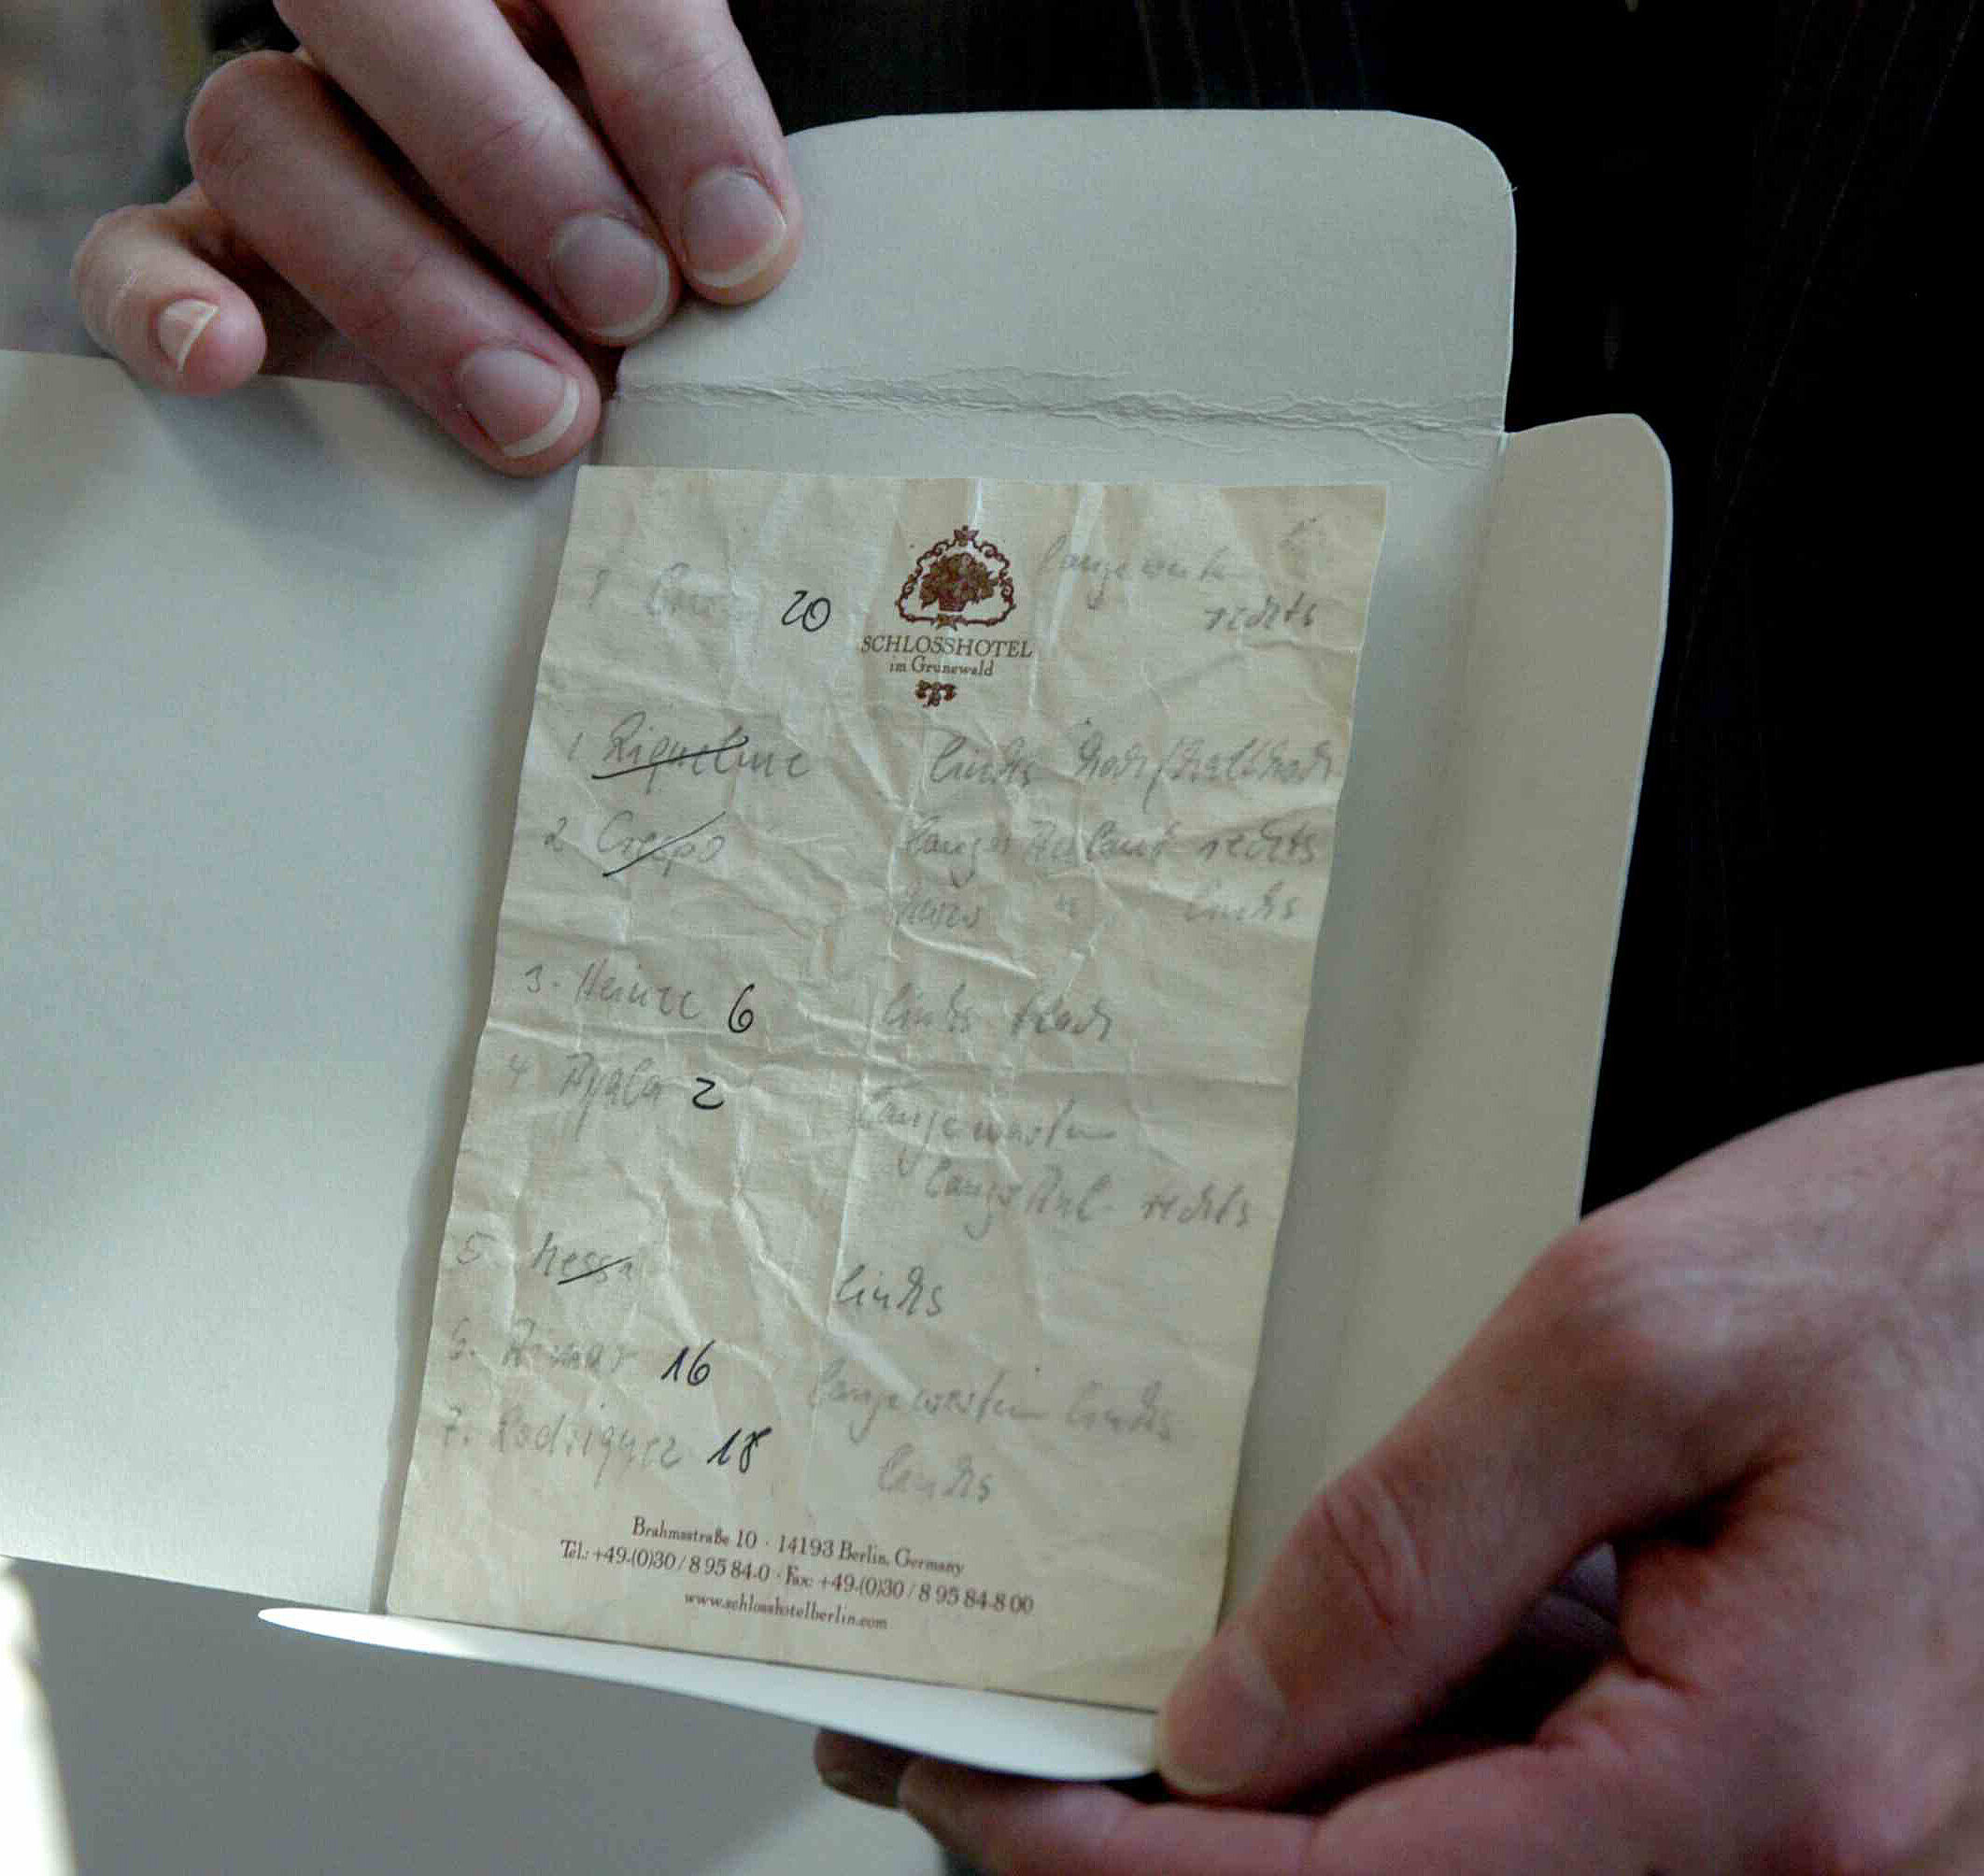 20
SCHLOSSHOTEL
im Grunewald
rechts
1 Riquelme links hoch/halbhoch
2 Crespo langer Anlauf rechts
kurzer " links
3. Heinze 6 links flach
4. Ayala 2
rechts
5. Messi links
6. Aimar 16 links
7. Rodriguez 18 links
Brahmsstraße 10 · 14193 Berlin, Germany
Tel.: +49-(0)30 / 8 95 84-0 · Fax: +49-(0)30 / 8 95 84-8 00
www.schlosshotelberlin.com